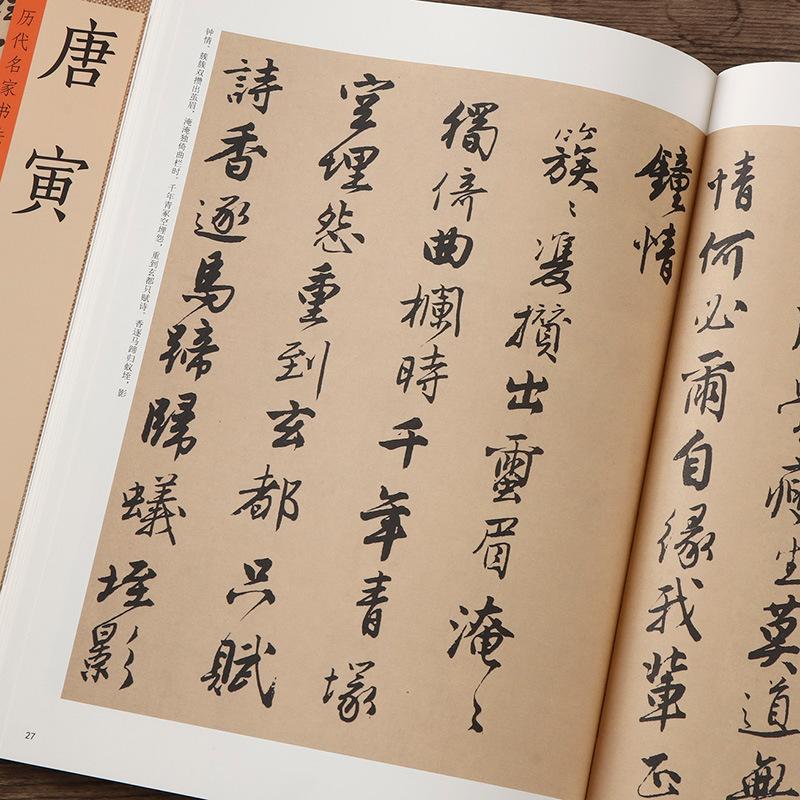 瘦生莫道無
情何必爾自緣我輩正
鐘情
簇〻雙攢出蠒眉淹〻
獨倚曲欄時千年青塚
空埋怨重到玄都只賦
詩香逐馬蹄歸蟻垤影
钟情。簇簇双攒出茧眉，淹淹独倚曲栏时。千年青冢空埋怨，重到玄都只赋诗。香逐马蹄归蚁垤，影
27
唐寅
历代名家书